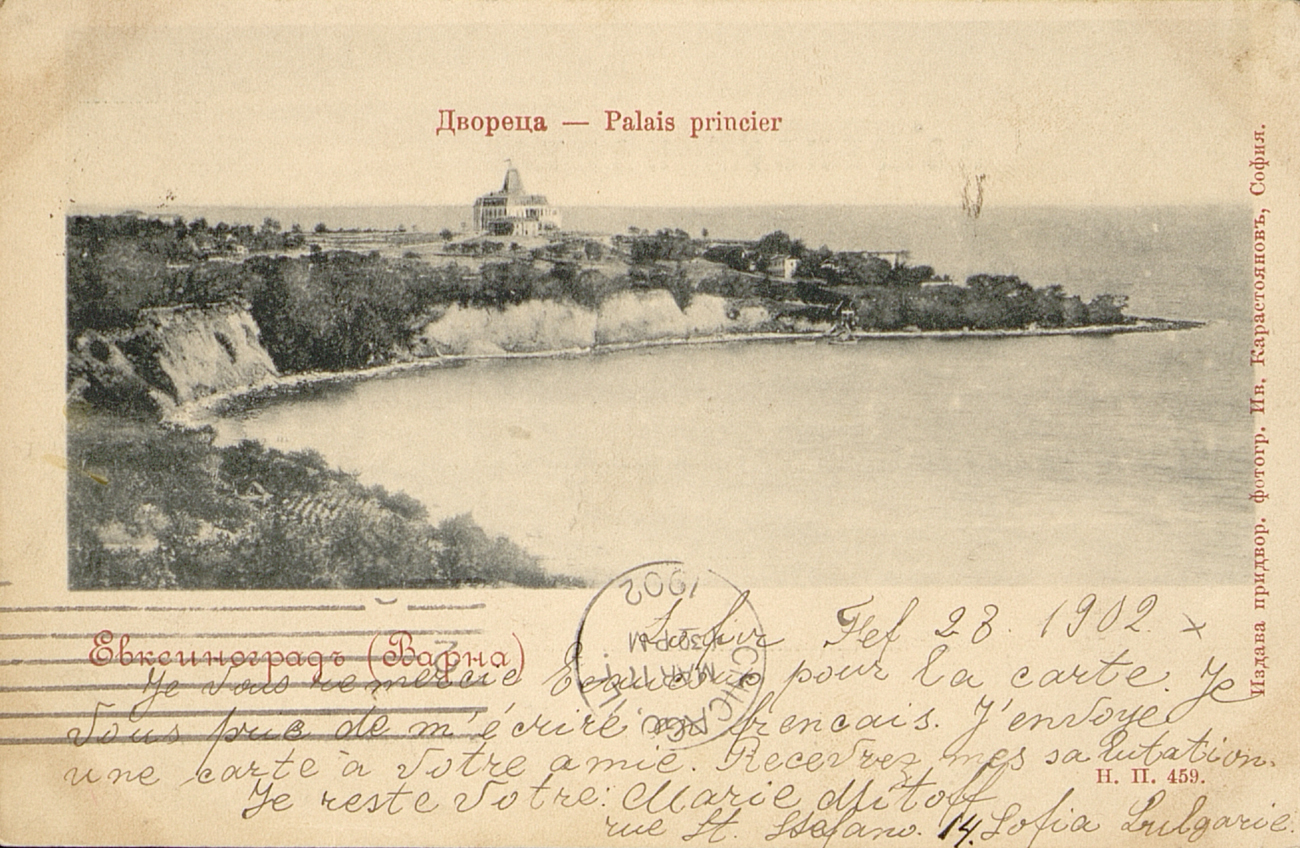 Двореца — Palais princier
Издава придвор. фотогр. Ив. Карастояновъ, София.
Евксиноградъ (Варна)
1902
30 PM
MAR 11
CHICAGO
Fef 28. 1902
Je vous remercie beaucoup pour la carte. Je
vous prie de m'écrire en frencais. J'envoye
une carte à votre amie. Recevrez mes salutation.
Н. П. 459.
Je reste votre: Marie Mitoff
rue St. Stefano. 14. Sofia Bulgarie.